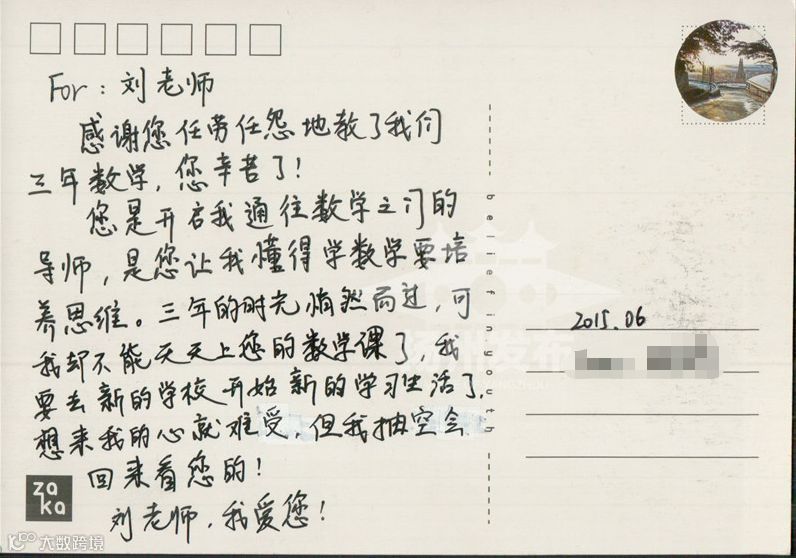 For：刘老师
感谢您任劳任怨地教了我们
三年数学，您辛苦了！
您是开启我通往数学之门的
导师，是您让我懂得学数学要培
养思维。三年的时光悄然而过，可
我却不能天天上您的数学课了，我
要去新的学校开始新的学习生活了，
想来我的心就难受，但我抽空会
回来看您的！
刘老师，我爱您！
belief in youth
2015.06
扬州发布
YANGZHOU
zaka
大数跨境